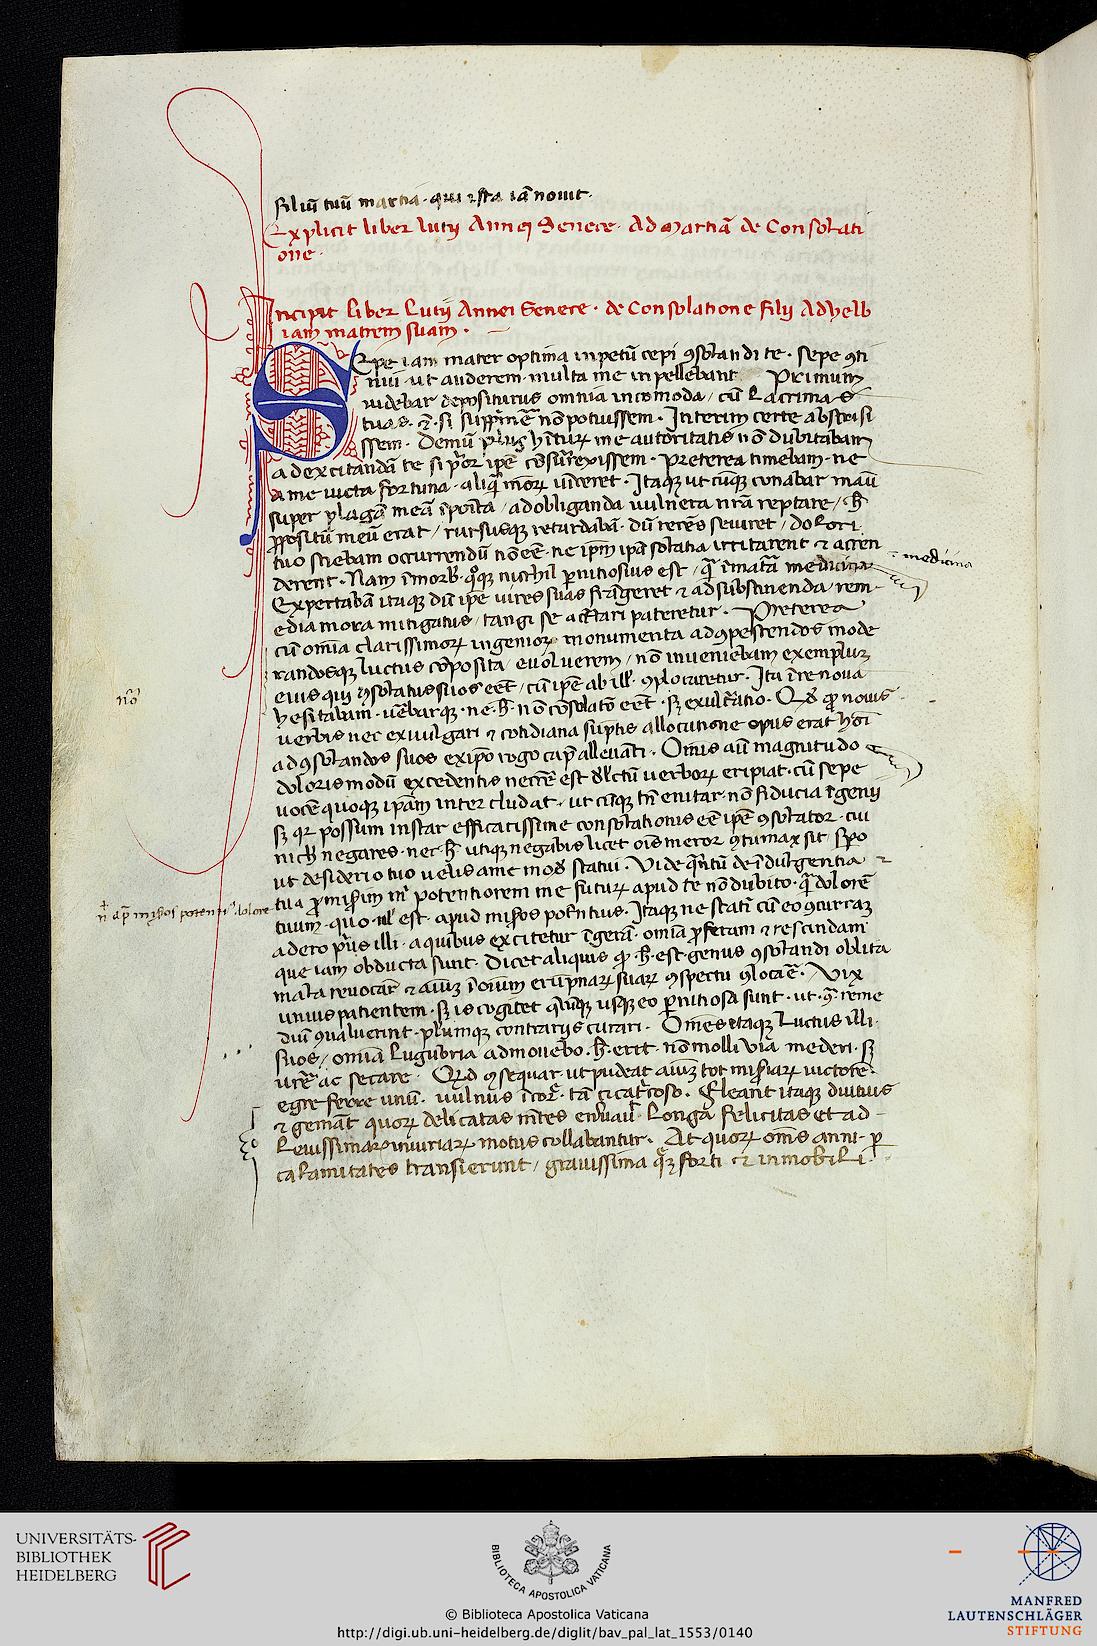 filiū tuū martia · qui ista iā novit ·
Explicit liber lutii Annei Senece · Ad Martiā de Consolati
one ·
Incipit liber Lutii Annei Senece · de Consolatione filii Ad helb
iam matrem suam ·
Sepe iam mater optima inpetū cepi ꝯsolandi te · sepe ꝯti
nui · ut auderem · multa me inpellebant Primum
uidebar depositurus omnia incomoda / cū lacrimas
tuas · si suppͥmē nō potuissem · Interim certe absteͬsi
ssem · Demū nō dubitabam
ad excitandā te si pͥor ipē cōsurͬexissem · Preterea timebam · ne
a me uicta fortuna · aliq̄ meoꝝ uīceret · Itaqꝫ ut cūqꝫ conabar manū
super plagā meā īpoīta / ad obliganda uulnera urā̄ reptare / h̄
ꝓpositū meū erat / rursusqꝫ retardabā · dū recēs seuiret / dolori
tuo sciebam occurrendū nō eē · ne ipm̄ ipā solatia irritarent ⁊ accen
derent · Nam ī morb̄ · qͦqꝫ nichil ꝑnitiosius est / q̄ īmatā medicina
medicina
Expectabā itaqꝫ dū ipē uires suas frāgeret ⁊ ad substinenda rem
edia mora mitigatus / tangi se ac tͣctari pateretur · Preterea
cū omīa clarissimoꝝ ingenioꝝ monumenta ad ꝯpescendos mode
randosqꝫ luctus cōposita / euoluerem / nō inueniebam exemplum
eius qui ꝯsolatus suos eēt / cū ipē ab ill̄ · ꝯploraretur · Ita ī re noua
hesitabam · uēbarqꝫ · ne · h̄ · nō cōsolatō eēt · sꝫ exulcͬatio · Qd̄ ꝙ nouis
uerbis nec ex uulgari ⁊ cotidiana sūptis allocutione opus erat hōī
ad ꝯsolandos suos ex ipō rogo cap̄ alleuāti · Om̄is aū magnitudo
doloris modū excedentis necēē est d̄lectū uerboꝝ eripiat · cū sepe
uocē quoqꝫ ipām intercludat · ut cūqꝫ tn̄ enitar · nō fiducia īgenii
sꝫ qꝛ possum instar efficatissime consolationis eē ipē ꝯsolator · cui
nich̄ negares · nec · h̄ · utiqꝫ negabis licet oīs meror ꝯtumax sit spō
ut desiderio tuo uelis a me mod̄ statui · Vide q̄ntū de īdulgentia
tua ꝓmisim mͥ potentiorem me futuꝝ apud te nō dubito · q̄ dolorē
tuum · quo · nͥl est · apud misͦos potentius · Itaqꝫ ne statī cū eo ꝯcurram
adero pͥus illi · a quibus excitetur īgerā · omīa ꝓferam ⁊ rescindam
que iam obducta sunt · Dicet aliquis ꝙ · h̄ · est genus ꝯsolandi oblita
mala reuocare ⁊ aīum ī oīum erūpnaꝝ suaꝝ ꝯspectu ꝯlocare · Vix
unius patientem · sꝫ is cogitet q̄cūqꝫ usqꝫ eo ꝑnitiosa sunt · ut · ꝯͣ reme
diū ꝯualuerint · plerumqꝫ contrariis curari · Om̄es itaqꝫ Luctus illi
suos / omīa lugubria admouebo · h̄ · erit · nō molli uia mederi · sꝫ
urē ac secare · Qd̄ ꝯsequar ut pudeat aīum tot misͤiaꝝ uictorē
egre ferre unū · uulnus ī corͤ · tā cicatͥcoso · Fleant itaqꝫ diutius
⁊ gemāt quoꝝ delicatas mētes enͥuauit · Longa felicitas et ad
Leuissimaꝝ iniuriaꝝ motus collabantur · At quoꝝ om̄s anni · ꝑ
calamitates transierunt / grauissima q̄qꝫ forti ⁊ inmobili ·
UNIVERSITÄTS-
BIBLIOTHEK
HEIDELBERG
BIBLIOTECA APOSTOLICA VATICANA
© Biblioteca Apostolica Vaticana
http://digi.ub.uni-heidelberg.de/diglit/bav_pal_lat_1553/0140
MANFRED
LAUTENSCHLÄGER
STIFTUNG